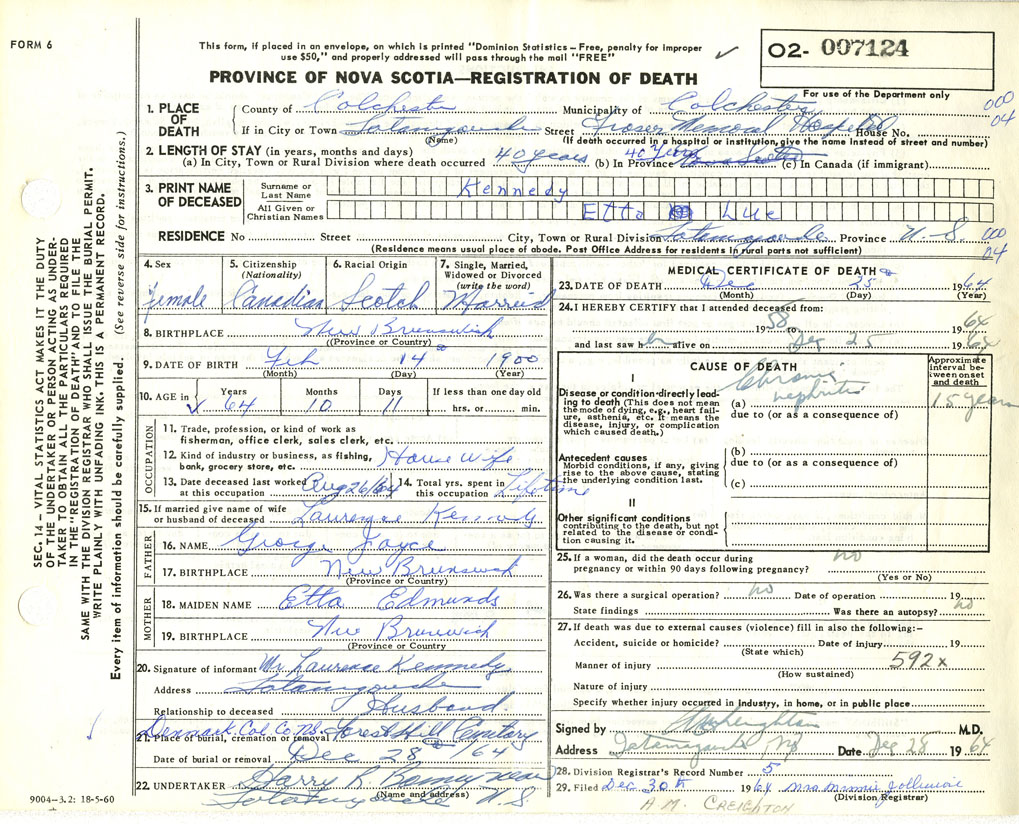 FORM 6
This form, if placed in an envelope, on which is printed "Dominion Statistics – Free, penalty for improper
use $50," and properly addressed will pass through the mail "FREE"
O2- 007124
PROVINCE OF NOVA SCOTIA—REGISTRATION OF DEATH
For use of the Department only
1. PLACE OF DEATH County of Colchester Municipality of Colchester 000 04
If in City or Town Tatamagouche Street Fraser Memorial Hospital House No.
(Name) (If death occurred in a hospital or institution, give the name instead of street and number)
2. LENGTH OF STAY (in years, months and days)
(a) In City, Town or Rural Division where death occurred 40 years (b) In Province 40 years (c) In Canada (if immigrant)
3. PRINT NAME OF DECEASED Surname or Last Name Kennedy
All Given or Christian Names Etta Lue
RESIDENCE No Street City, Town or Rural Division Tatamagouche Province N.S. 000 04
(Residence means usual place of abode. Post Office Address for residents in rural parts not sufficient)
4. Sex female
5. Citizenship (Nationality) Canadian
6. Racial Origin Scotch
7. Single, Married, Widowed or Divorced (write the word) Married
8. BIRTHPLACE New Brunswick
(Province or Country)
9. DATE OF BIRTH Feb 14 1900
(Month) (Day) (Year)
10. AGE in Years 64 Months 10 Days 11 If less than one day old hrs. or min.
OCCUPATION
11. Trade, profession, or kind of work as
fisherman, office clerk, sales clerk, etc.
12. Kind of industry or business, as fishing,
bank, grocery store, etc. House Wife
13. Date deceased last worked at this occupation Aug 26/64 14. Total yrs. spent in this occupation Lifetime
15. If married give name of wife
or husband of deceased Laurence Kennedy
FATHER
16. NAME George Joyce
17. BIRTHPLACE New Brunswick
(Province or Country)
MOTHER
18. MAIDEN NAME Etta Edmunds
19. BIRTHPLACE New Brunswick
(Province or Country
20. Signature of informant Mr Laurence Kennedy
Address Tatamagouche
Relationship to deceased Husband.
Denmark Col. Co. N.S.
21. Place of burial, cremation or removal Forest Hill Cemetery
Date of burial or removal Dec 28 64
22. UNDERTAKER Harry R
(Name and address)
Tatamagouche N.S.
9004—3.2: 18-5-60
MEDICAL CERTIFICATE OF DEATH
23. DATE OF DEATH Dec 25 1964
(Month) (Day) (Year)
24. I HEREBY CERTIFY that I attended deceased from:
1958 to 1964
and last saw her alive on Dec 25 1964
CAUSE OF DEATH
Approximate interval between onset and death
I
Disease or condition directly leading to death (This does not mean the mode of dying, e.g., heart failure, asthenia, etc. It means the disease, injury, or complication which caused death.)
(a) Chronic nephritis 15 years
due to (or as a consequence of)
Antecedent causes
Morbid conditions, if any, giving rise to the above cause, stating the underlying condition last.
(b)
due to (or as a consequence of)
(c)
II
Other significant conditions
contributing to the death, but not related to the disease or condition causing it.
25. If a woman, did the death occur during
pregnancy or within 90 days following pregnancy? no
(Yes or No)
26. Was there a surgical operation? no Date of operation 19
State findings Was there an autopsy? no
27. If death was due to external causes (violence) fill in also the following:—
Accident, suicide or homicide? Date of injury 19
(State which)
Manner of injury 592x
(How sustained)
Nature of injury
Specify whether injury occurred in industry, in home, or in public place
Signed by Creighton M.D.
Address Tatamagouche NS Date Dec 28 1964
28. Division Registrar's Record Number 5
29. Filed Dec 30th 1964 Mrs Minnie
(Division Registrar)
A.M. CREIGHTON
SEC. 14 – VITAL STATISTICS ACT MAKES IT THE DUTY
OF THE UNDERTAKER OR PERSON ACTING AS UNDER-
TAKER TO OBTAIN ALL THE PARTICULARS REQUIRED
IN THE "REGISTRATION OF DEATH" AND TO FILE THE
SAME WITH THE DIVISION REGISTRAR WHO SHALL ISSUE THE BURIAL PERMIT.
WRITE PLAINLY WITH UNFADING INK. THIS IS A PERMANENT RECORD.
Every item of information should be carefully supplied. (See reverse side for instructions.)